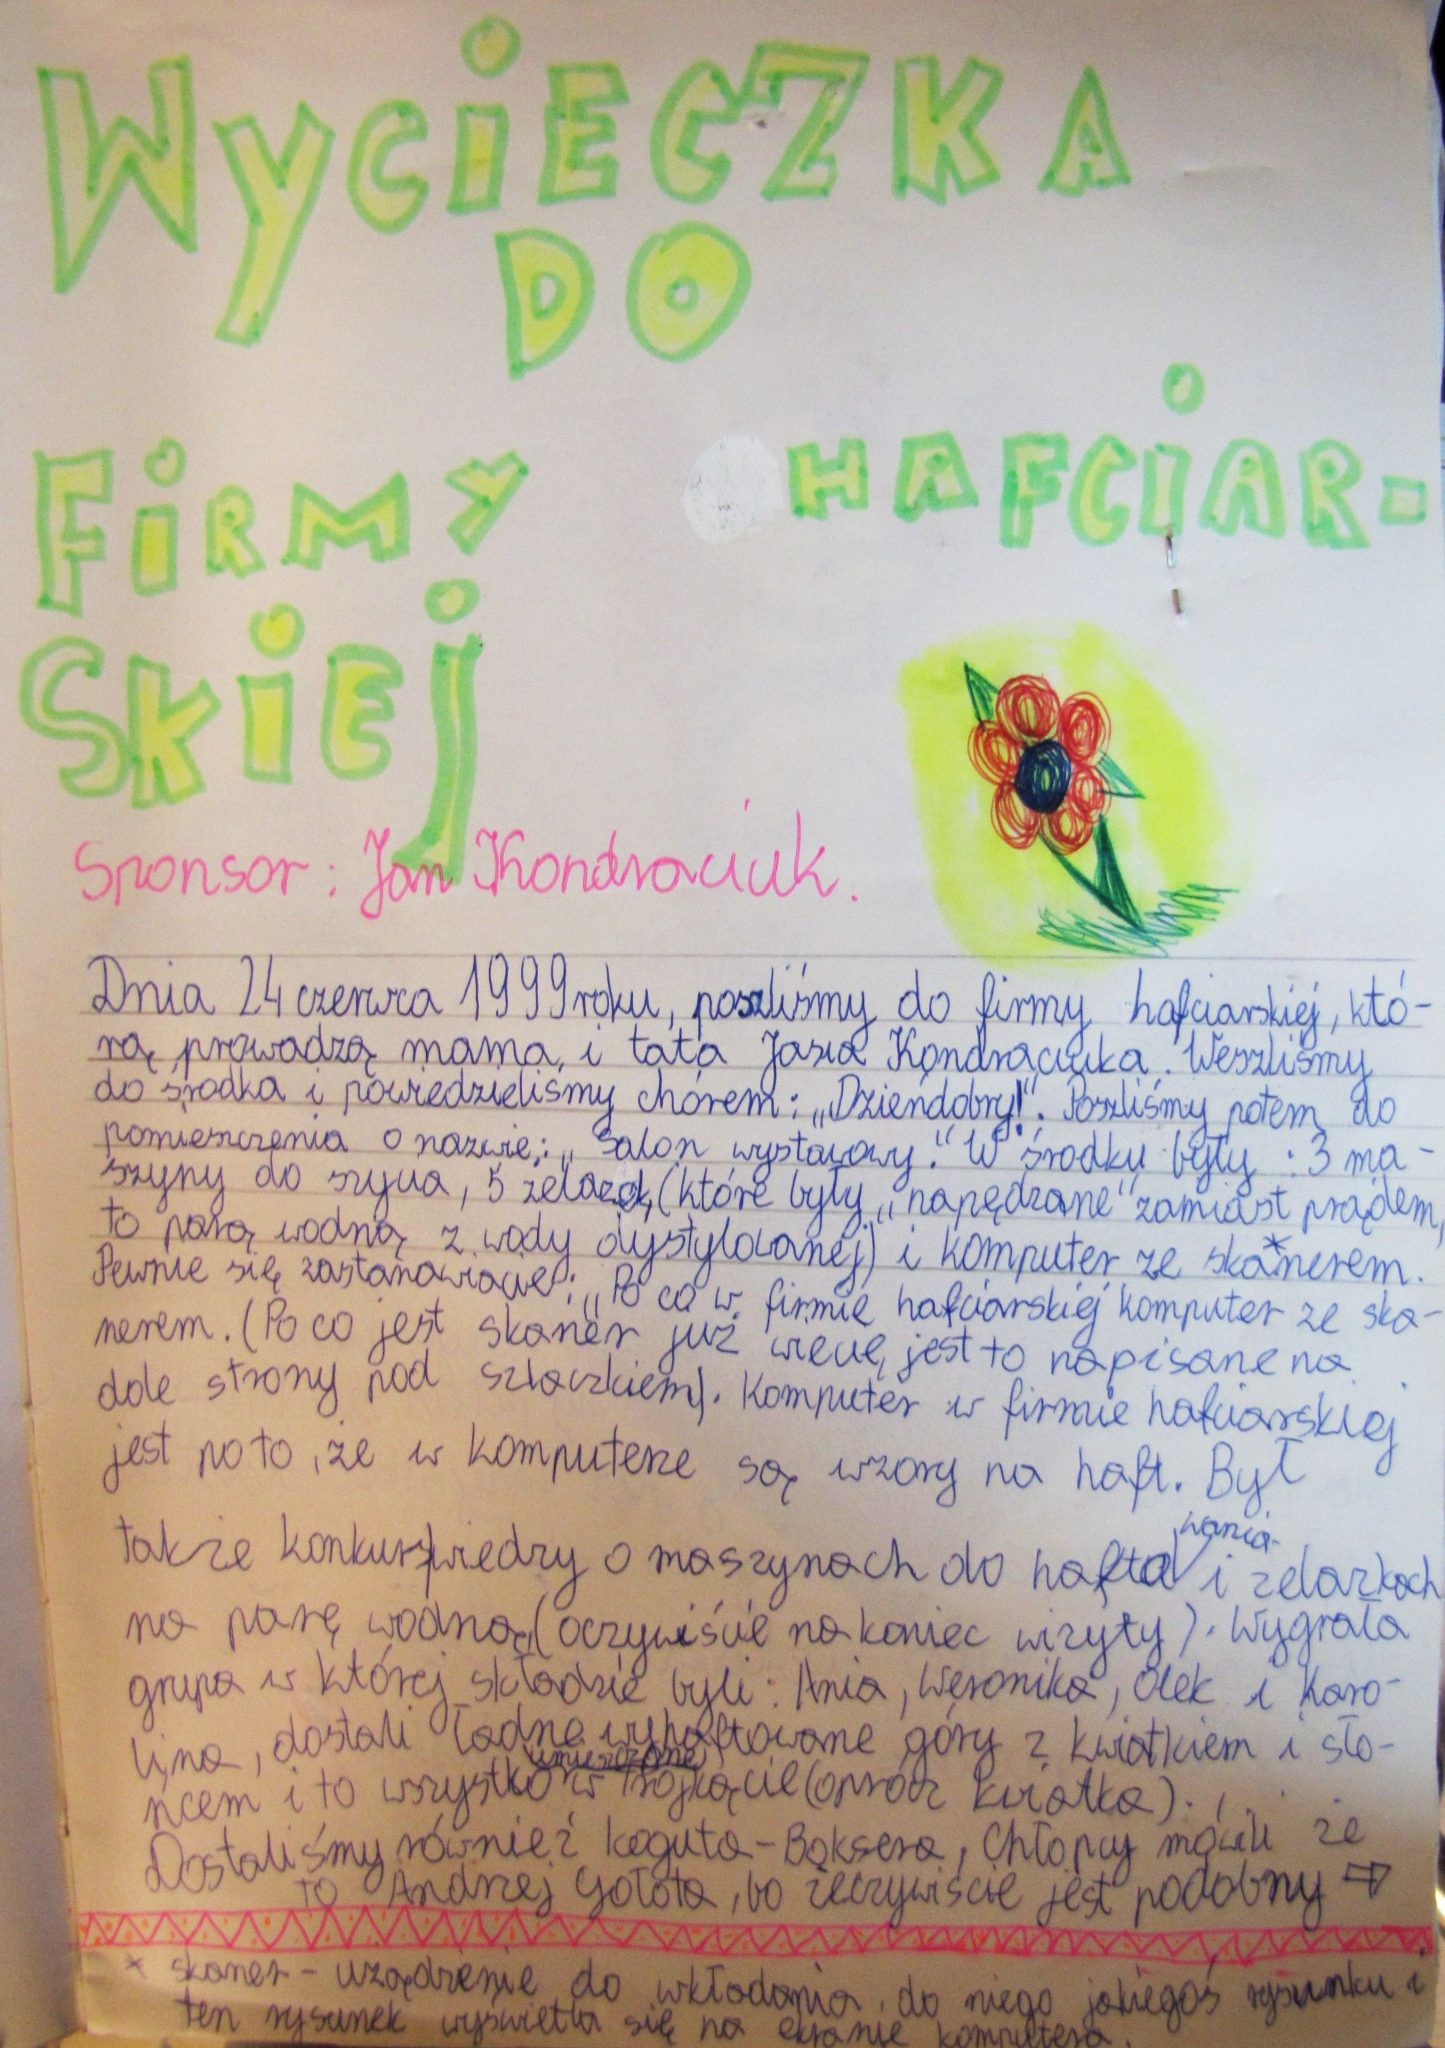 WYCiECZKA
DO
FiRMY HAFCiAR-
SKiEJ
Sponsor: Jan Kondraciuk.
Dnia 24 czerwca 1999 roku, poszliśmy do firmy hafciarskiej, któ-
rą prowadzą mama i tata Jasia Kondraciuka. Weszliśmy
do środka i powiedzieliśmy chórem: „Dzieńdobry!". Poszliśmy potem do
pomieszczenia o nazwie: „Salon wystawowy." W środku były: 3 ma-
szyny do szycia, 5 żelazek, (które były „napędzane" zamiast prądem,
to parą wodną z wody dystylowanej) i komputer ze ska*nerem.
Pewnie się zastanawiacie: „Po co w firmie hafciarskiej komputer ze ska-
nerem. (Po co jest skaner już wiecie, jest to napisane na
dole strony pod szlaczkiem). Komputer w firmie hafciarskiej
jest po to, że w komputerze są wzory na haft. Był
także konkurs wiedzy o maszynach do hafto wania i żelazkach
na parę wodną, (oczywiście na koniec wizyty). Wygrała
grupa w której składzie byli: Ania, Weronika, Olek i Karo-
lina, dostali ładne wyhaftowane góry z kwiatkiem i sło-
ńcem i to wszystko umieszczone w trójkącie (oprócz kwiatka).
Dostaliśmy również koguta-Boksera, Chłopcy mówili że
to Andrzej Gołota, bo rzeczywiście jest podobny ⇨
* skaner - urządzenie do wkładania do niego jakiegoś rysunku i
ten rysunek wyświetla się na ekranie komputera.